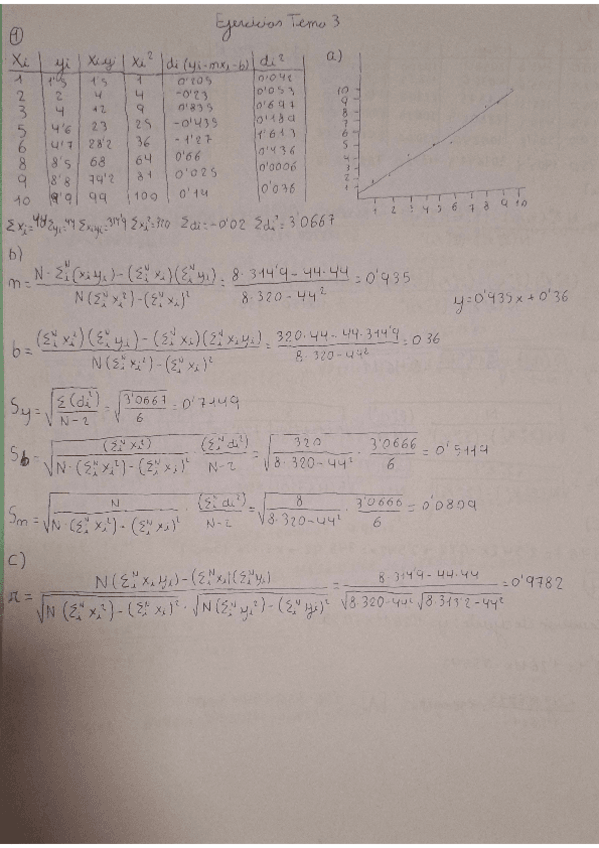 Ejercicios Tema 3
①
xi yi xi·yi xi² di (yi-mxi-b) di² a)
1 1'5 1'5 1 0'205 0'042
2 2 4 4 -0'23 0'053
3 4 12 9 0'835 0'697
5 4'6 23 25 -0'435 0'189
6 4'7 28'2 36 -1'27 1'613
8 8'5 68 64 0'66 0'436
9 8'8 79'2 81 0'025 0'0006
10 9'9 99 100 0'19 0'036
10
9
8
7
6
5
4
3
2
1
1 2 3 4 5 6 7 8 9 10
Σxi=44 Σyi=44 Σxiyi=314'9 Σxi²=320 Σdi=-0'02 Σdi²=3'0667
b)
m = N·Σᵢᴺ(xiyi)-(Σᵢᴺxi)(Σᵢᴺyi) / N(Σᵢᴺxi²)-(Σᵢᴺxi)² = 8·314'9-44·44 / 8·320-44² = 0'935
y=0'935x+0'36
b = (Σᵢᴺxi²)(Σᵢᴺyi)-(Σᵢᴺxi)(Σᵢᴺxiyi) / N(Σᵢᴺxi²)-(Σᵢᴺxi)² = 320·44-44·314'9 / 8·320-44² = 0'36
Sy = √(Σ(di²) / N-2) = √(3'0667 / 6) = 0'7149
Sb = √((Σᵢᴺxi²) / N·(Σᵢᴺxi²)-(Σᵢᴺxi)² · (Σᵢᴺdi²) / N-2) = √(320 / 8·320-44² · 3'0666 / 6) = 0'5119
Sm = √(N / N·(Σᵢᴺxi²)-(Σᵢᴺxi)² · (Σᵢᴺdi²) / N-2) = √(8 / 8·320-44² · 3'0666 / 6) = 0'0809
c)
r = N(Σᵢᴺxiyi)-(Σᵢᴺxi)(Σᵢᴺyi) / √(N(Σᵢᴺxi²)-(Σᵢᴺxi)²)·√(N(Σᵢᴺyi²)-(Σᵢᴺyi)²) = 8·314'9-44·44 / √(8·320-44²) √(8·313'2-44²) = 0'9782